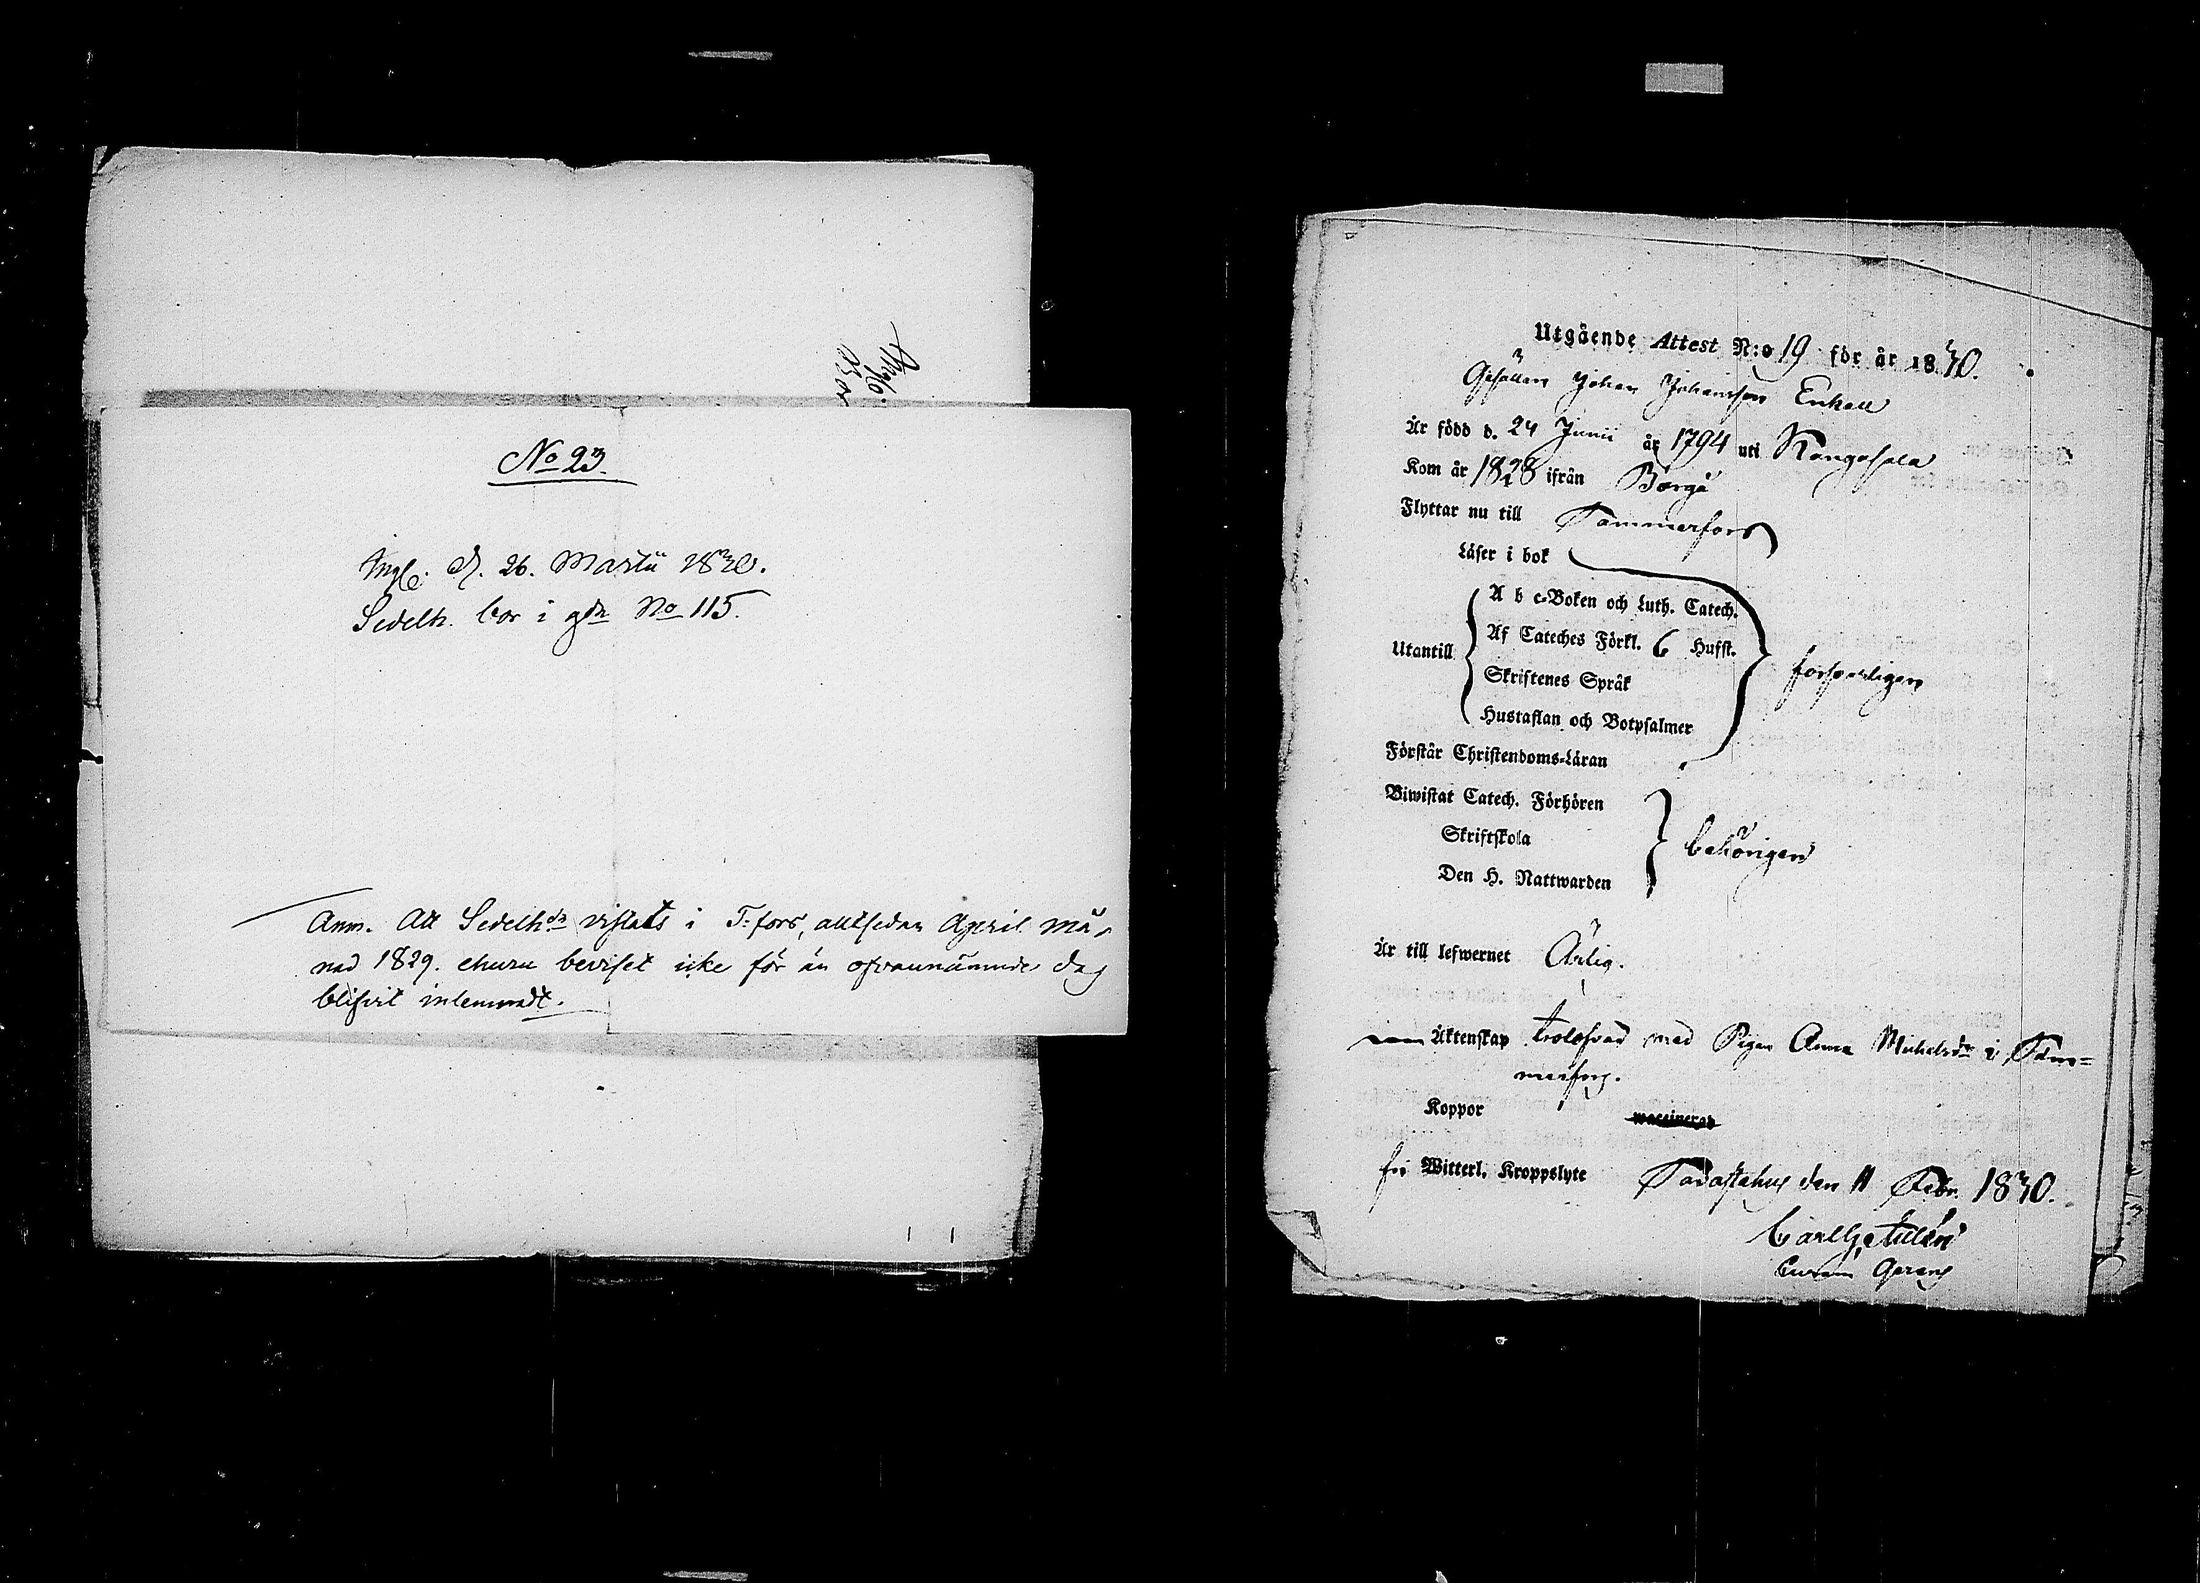 No 23.
Ingl. d. 26. Martii 1830.
Sedelh. bor i gdn No 115.
Anm. Att Sedelhn vistats i T:fors, alltsedan April må-
nad 1829. ehuru beviset icke för än ofvannämnde dag
blifvit inlemnadt.
Utgående Attest N:o 19 för år 1830.
Gesällen Johan Johansson Enkell
Är född d. 24 Junii år 1794 uti Kangasala
Kom år 1828 ifrån Borgå
Flyttar nu till Tammerfors
Läser i bok
A b c-Boken och Luth. Catech.
Utantill Af Cateches Förkl. 6 Hufst.
Skriftenes Språk
Hustaflan och Botpsalmer
försvarligen
Förstår Christendoms-Läran
Biwistat Catech. Förhören
Skriftskola
behörigen
Den H. Nattwarden
Är till lefwernet Ärlig.
Äktenskap trolofvad med Pigan Anna Michelsdr i Tam=
merfors.
Koppor waccinerad
fri Witterl. Kroppslyte Tavastehus den 11 Febr. 1830.